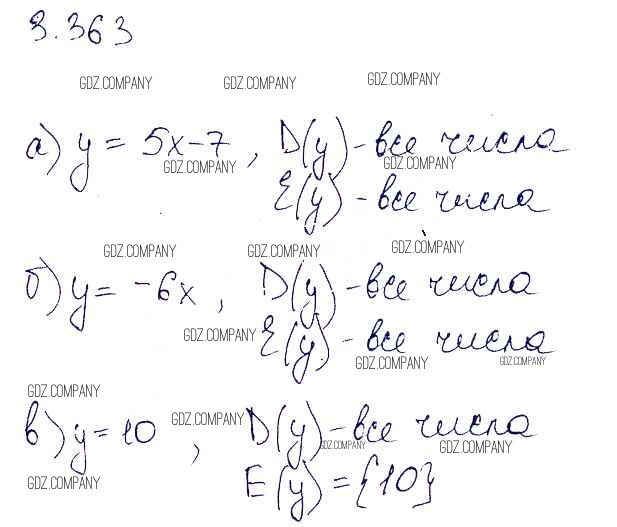 3.363
GDZ.COMPANY GDZ.COMPANY GDZ.COMPANY
а) y = 5x-7, D(y) - все числа
GDZ.COMPANY GDZ.COMPANY
E(y) - все числа
GDZ.COMPANY GDZ.COMPANY GDZ.COMPANY
б) y = -6x, D(y) - все числа
GDZ.COMPANY E(y) - все числа
GDZ.COMPANY GDZ.COMPANY
GDZ.COMPANY
в) y = 10, D(y) - все числа
GDZ.COMPANY GDZ.COMPANY GDZ.COMPANY
GDZ.COMPANY E(y) = {10}